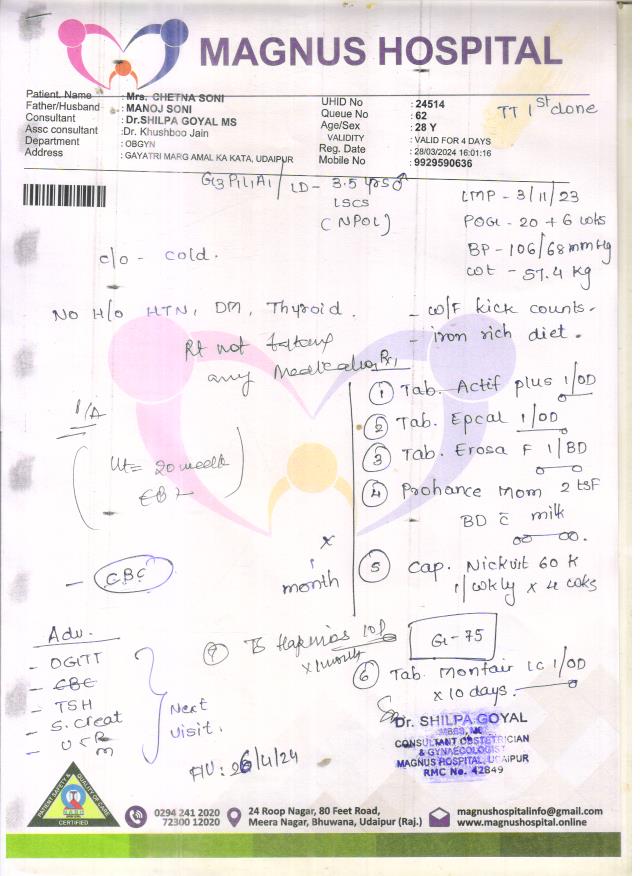 MAGNUS HOSPITAL
Patient. Name : Mrs. CHETNA SONI
Father/Husband : MANOJ SONI
Consultant : Dr.SHILPA GOYAL MS
Assc consultant : Dr. Khushboo Jain
Department : OBGYN
Address : GAYATRI MARG AMAL KA KATA, UDAIPUR
UHID No : 24514
Queue No : 62
Age/Sex : 28 Y
VALIDITY : VALID FOR 4 DAYS
Reg. Date : 28/03/2024 16:01:16
Mobile No : 9929590636
TT 1st done
G3P1L1A1 / LD - 3.5 yrs ♂
LSCS
(NPOL)
LMP - 3/11/23
POG - 20 + 6 wks
BP - 106/68 mmHg
wt - 57.4 kg
c/o - cold.
No H/o HTN, DM, Thyroid.
Pt not taking
any Medication
- w/F kick counts.
- iron rich diet.
Rx,
P/A
Ut = 20 week
- CBC
x
1
month
① Tab. Actif plus 1/OD
② Tab. Epcal 1/OD
③ Tab. Erosa F 1/BD
④ Prohance Mom 2 tsf
BD c̄ milk
⑤ Cap. Nickvit 60 K
1/wkly x 4 wks
G-75
⑥ Tab. Montair LC 1/OD
x 10 days.
⑦
x 1 month
Adv.
- OGTT
- CBC
- TSH
- S. Creat
- U R
m
Next
visit.
F/U: 26/4/24
Dr. SHILPA GOYAL
MBBS, MS
CONSULTANT OBSTETRICIAN
& GYNAECOLOGIST
MAGNUS HOSPITAL, UDAIPUR
RMC No. 42849
PATIENT SAFETY & QUALITY OF CARE
CERTIFIED
0294 241 2020
72300 12020
24 Roop Nagar, 80 Feet Road,
Meera Nagar, Bhuwana, Udaipur (Raj.)
magnushospitalinfo@gmail.com
www.magnushospital.online